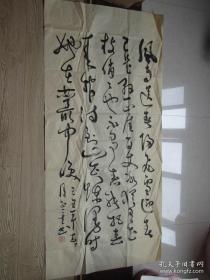 風雨送春归飛雪迎春
到已是悬崖百丈冰犹有花
枝俏俏也不争春只把春
来报待到山花烂漫时
她在丛中笑